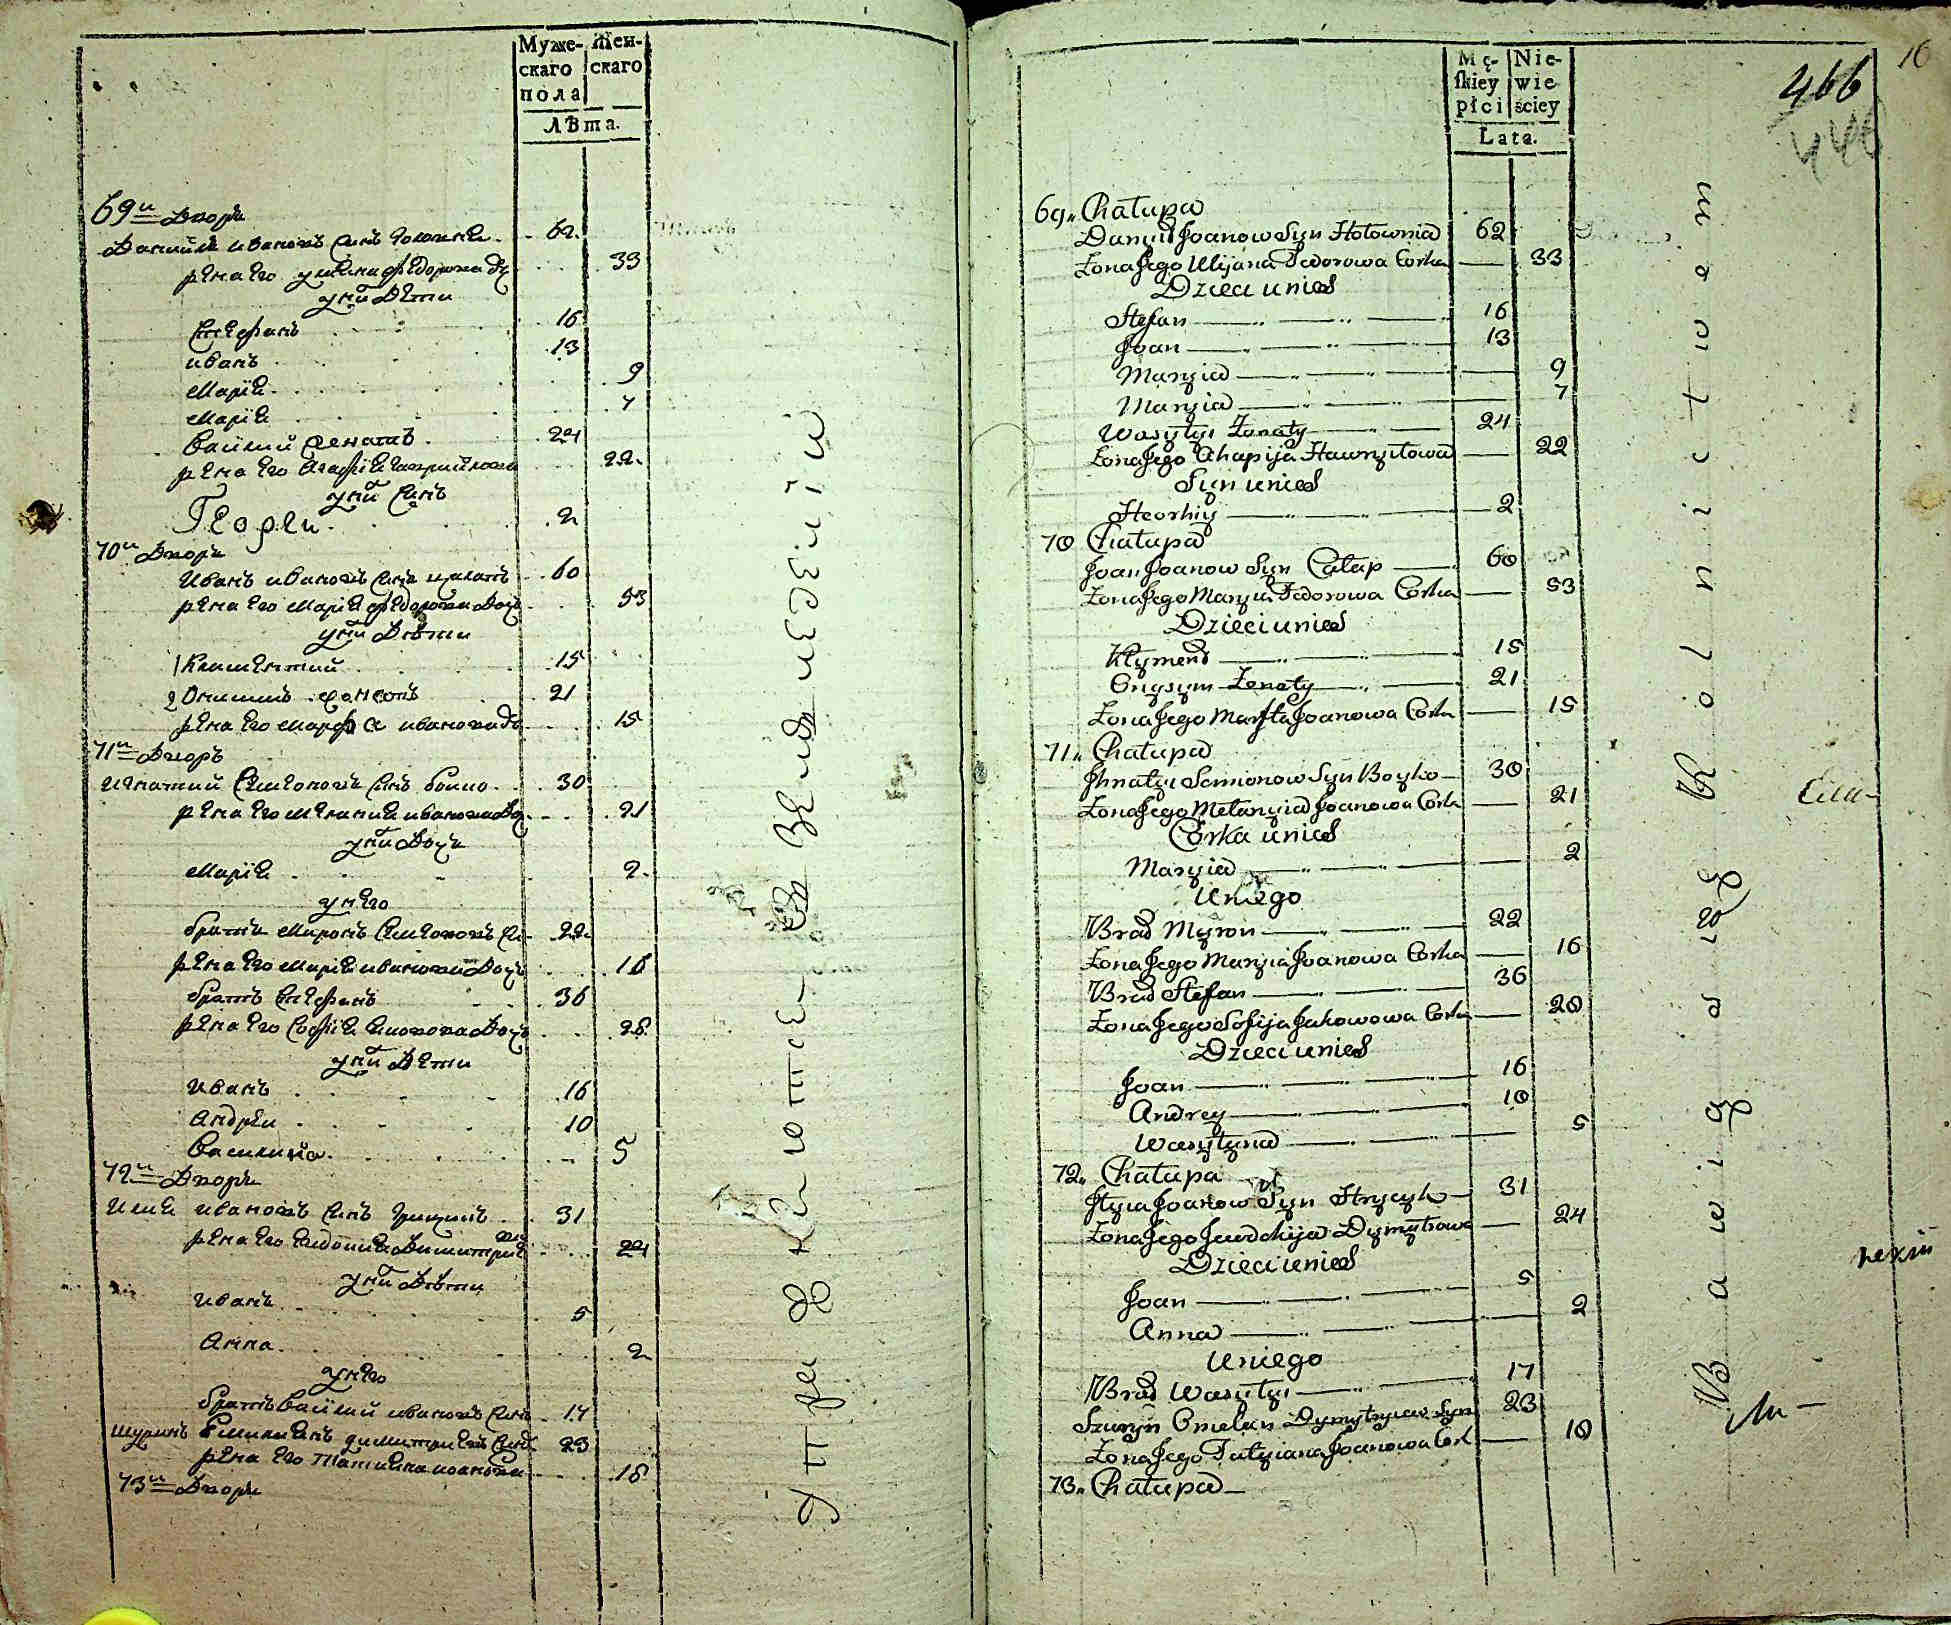 Муже- Жен-
скаго скаго
пола
Лѣта.
69й Дворъ
Данiилъ Ивановъ Синъ 62
Жена Его Улияна Федорова До 33
у них Дѣти
Стефанъ 16
Иванъ 13
Марiя 9
Марiя 7
Василий женатъ 24
Жена Его Агафiя 22
у них Синъ
Георги 2
70й Дворъ
Иванъ Ивановъ Синъ Цалапъ 60
Жена Его Марiя Федорова Дочь 53
у них Дѣти
1 Климентий 15
2 Онисимъ женатъ 21
Жена Его Марфа Иванова До 15
71й Дворъ
Игнатий Симеоновъ Синъ Бойко 30
Жена Его Мелания Иванова До 21
у них Дочь
Марiя 2
у него
братъ Миронъ Симеоновъ Си 22
Жена Его Марiя Иванова Дочь 16
братъ Стефанъ 36
Жена Его Софiя Дочь 28
у них Дѣти
Иванъ 16
Андрѣи 10
Василина 5
72й Дворъ
Илия Ивановъ Синъ Грицикъ 31
Жена Его Евдокия Димитрие 24
у них Дѣти
Иванъ 5
Анна 2
у него
братъ Василий Ивановъ Синъ 17
шуринъ Емилиянъ Димитриевъ Синъ 23
Жена Его Татияна Иванова 18
73й Дворъ
Упражняются въ земледелiи
16
466
446
Mę- Nie-
skiey wie
płci ściey
Lata.
69. Chałupa
Danyił Joanow Syn Hołownia 62
Żona Jego Ulijana Fedorowa Corka 33
Dzieci u nich
Stefan 16
Joan 13
Maryia 9
Maryia 7
Wasylyi Żonaty 24
Żona Jego Ahapija Hawryłowa 22
Syn u nich
Heorhiy 2
70 Chałupa
Joan Joanow Syn Całap 60
Żona Jego Maryia Fedorowa Corka 53
Dzieci u nich
Kłyment 15
Onysym Żonaty 21
Żona Jego Marfta Joanowa Corka 15
71. Chałupa
Jhnatyi Semionow Syn Boyko 30
Żona Jego Mełanyia Joanowa Corka 21
Corka u nich
Maryia 2
U niego
Brat Myron 22
Żona Jego Maryia Joanowa Corka 16
Brat Stefan 36
Żona Jego Sofija Jakowowa Corka 20
Dzieci u nich
Joan 16
Andrey 10
Wasylyna 5
72. Chałupa
Jlyia Joanow Syn Hrycyk 31
Żona Jego Jewdokija Dymytrowa 24
Dzieci u nich
Joan 5
Anna 2
U niego
Brat Wasylyi 17
Szuryn Omelan Dymytryiew Syn 23
Żona Jego Tatyiana Joanowa Cork 18
73. Chałupa
Bawią się Rolnictwem